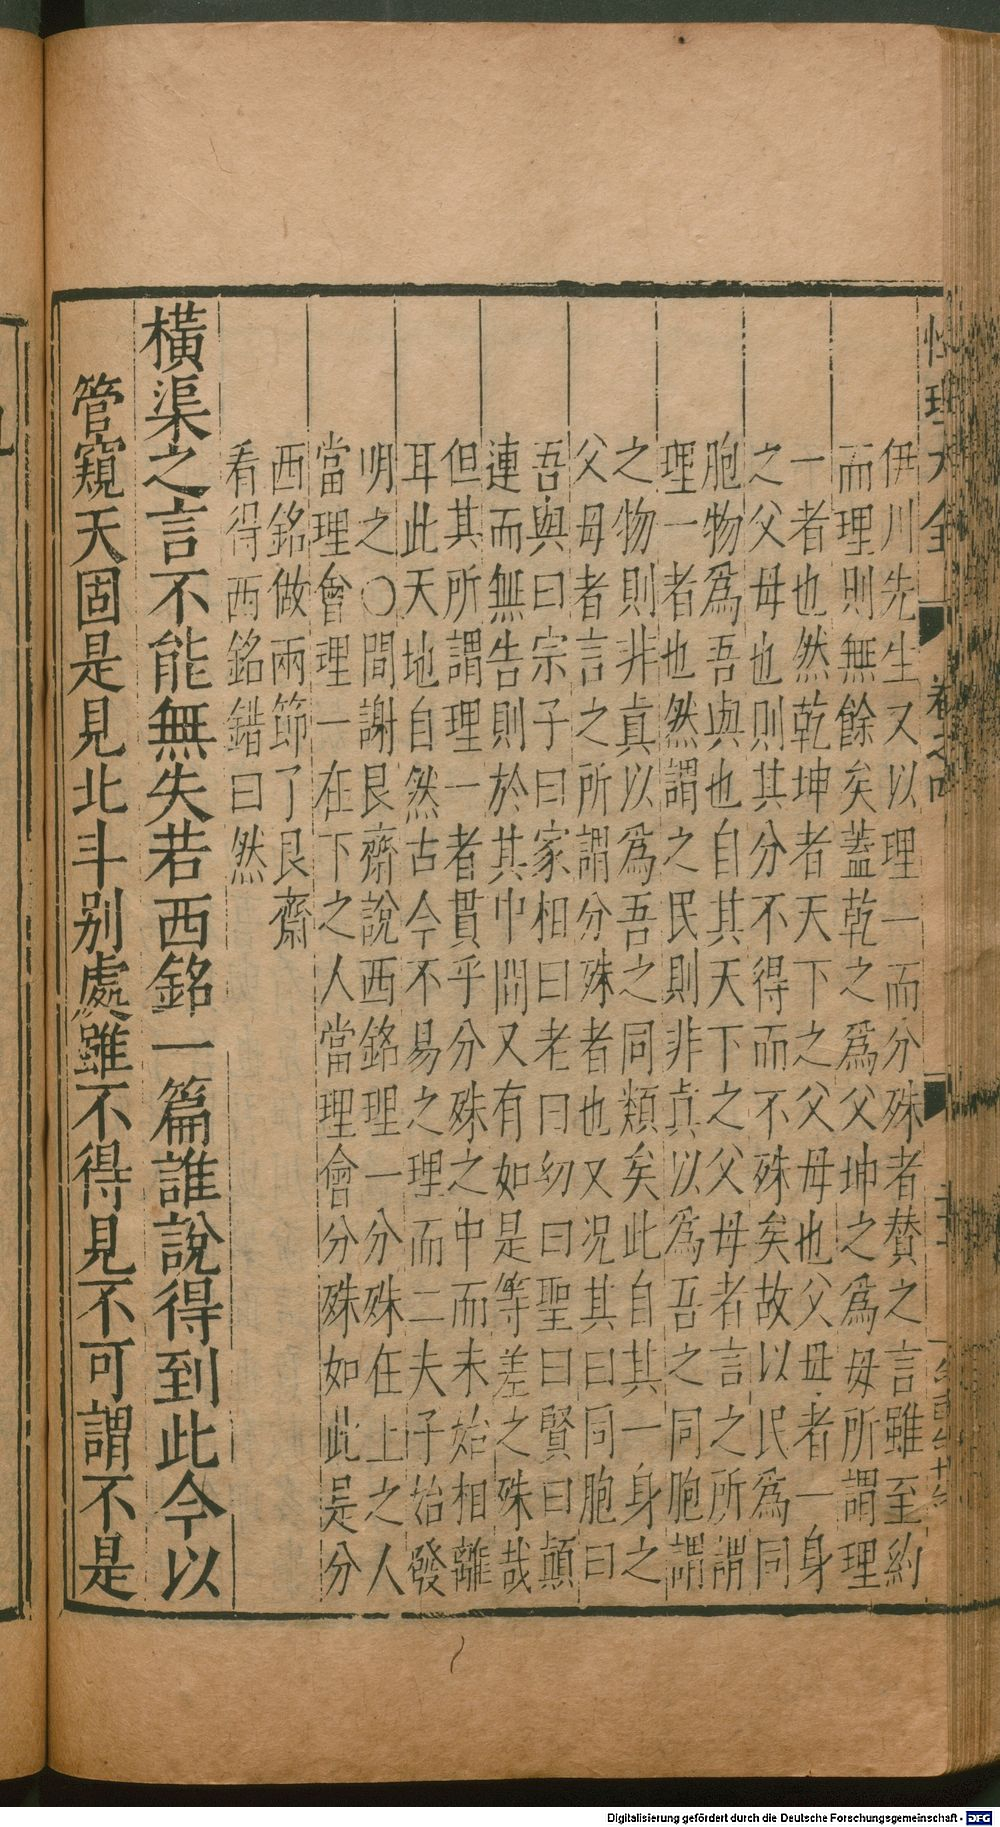 性理大全
卷之四
伊川先生又以理一而分殊者賛之言雖至約
而理則無餘矣蓋乾之爲父坤之爲母所謂理
一者也然乾坤者天下之父母也父母者一身
之父母也則其分不得而不殊矣故以民爲同
胞物爲吾與也自其天下之父母者言之所謂
理一者也然謂之民則非真以爲吾之同胞謂
之物則非真以爲吾之同類矣此自其一身之
父母者言之所謂分殊者也又况其曰同胞曰
吾與曰宗子曰家相曰老曰幼曰聖曰賢曰顛
連而無告則於其中間又有如是等差之殊哉
但其所謂理一者貫乎分殊之中而未始相離
耳此天地自然古今不易之理而二夫子始發
明之〇間謝艮齋說西銘理一分殊在上之人
當理會理一在下之人當理會分殊如此是分
西銘做兩節了艮齋
看得西銘錯曰然
橫渠之言不能無失若西銘一篇誰說得到此今以
管窺天固是見北斗别處雖不得見不可謂不是
Digitalisierung gefördert durch die Deutsche Forschungsgemeinschaft - DFG